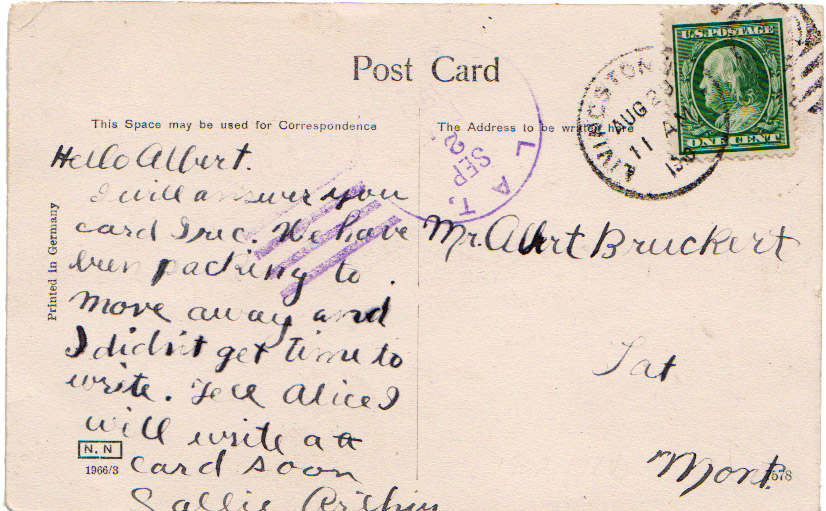 Post Card
This Space may be used for Correspondence
The Address to be written here
Hello Albert.
I will answer you
card I rec. We have
been packing to
move away and
I didn't get time to
write. Tell Alice I
will write a
card soon
Sallie
Mr. Albert Bruckert
Lat
Mont.
Printed in Germany
N. N
1966/3
578
U.S. POSTAGE
ONE CENT
LIVINGSTON
AUG
11 AM
LAT
SEP
2